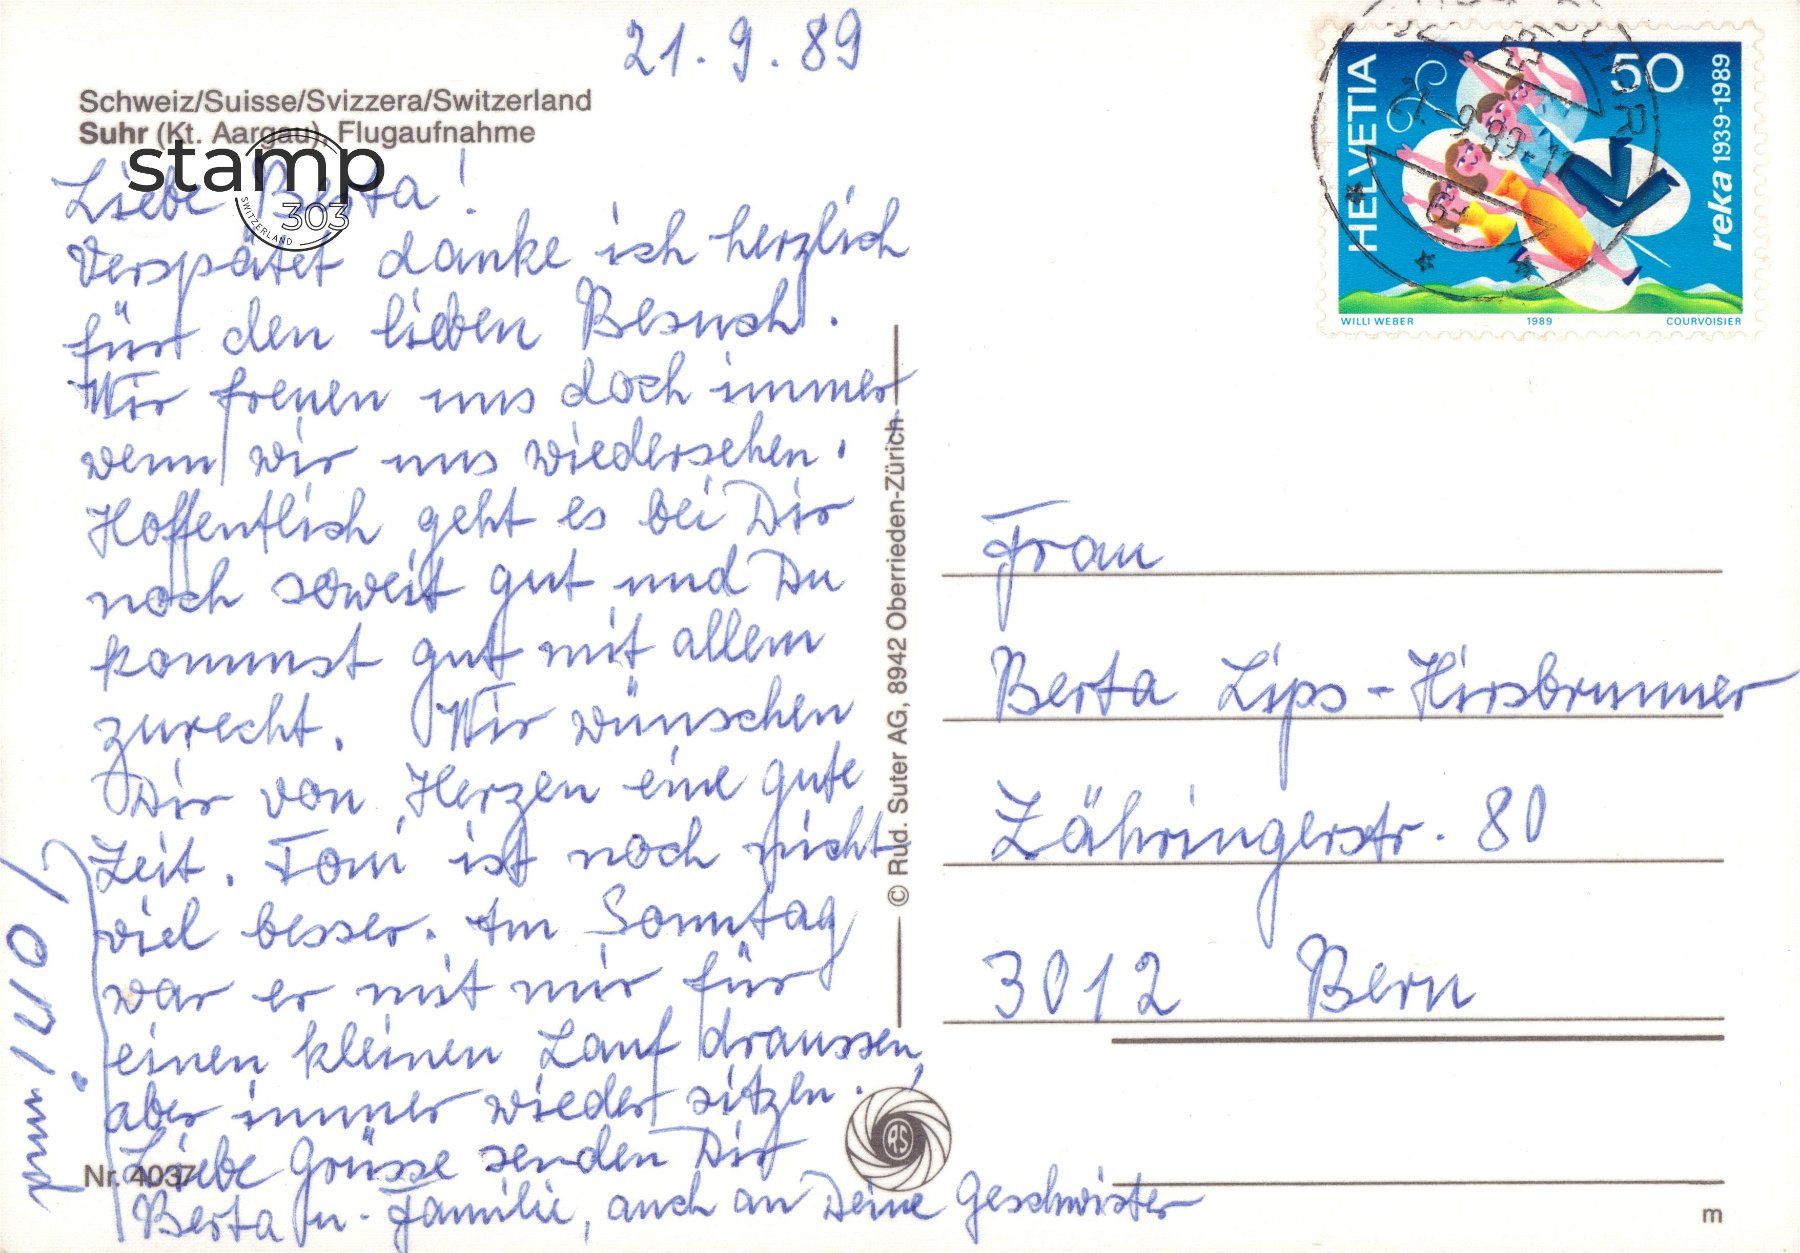 21.9.89
Schweiz/Suisse/Svizzera/Switzerland
Suhr (Kt. Aargau), Flugaufnahme
stamp
303
SWITZERLAND
Liebe Berta!
Verspätet danke ich herzlich
für den lieben Besuch.
Wir freuen uns doch immer
wenn wir uns wiedersehen.
Hoffentlich geht es bei Dir
noch soweit gut und Du
kommst gut mit allem
zurecht. Wir wünschen
Dir von Herzen eine gute
Zeit. Toni ist noch nicht
viel besser. Am Sonntag
war er mit mir für
einen kleinen Lauf draussen,
aber immer wieder sitzen.!
Liebe Grüsse senden Dir
Berta u. Familie, auch an Deine Geschwister
und
Toni
Nr. 4037
© Rud. Suter AG, 8942 Oberrieden-Zürich
RS
HELVETIA
50
reka 1939-1989
WILLI WEBER 1989 COURVOISIER
21.-9.89-11
Frau
Berta Lips-Hirsbrunner
Zähringerstr. 80
3012 Bern
m